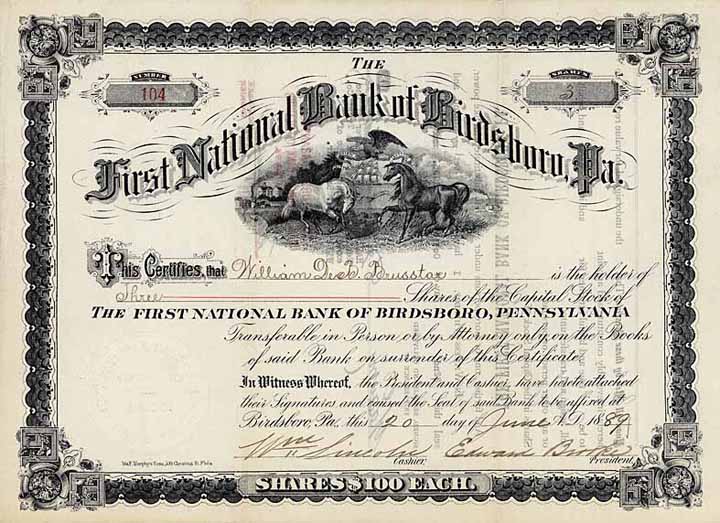 THE
NUMBER
104
SHARES
3
First National Bank of Birdsboro, Pa.
This Certifies, that William Brusstar is the holder of
Three Shares of the Capital Stock of
THE FIRST NATIONAL BANK OF BIRDSBORO, PENNSYLVANIA
Transferable in Person or by Attorney only, on the Books
of said Bank on surrender of this Certificate
In Witness Whereof, the President and Cashier, have hereto attached
their Signatures and caused the Seal of said Bank to be affixed at
Birdsboro, Pa. this 20 day of June A.D. 1889
Wm Lincoln Cashier, Edward President,
Wm F. Murphy's Sons, 509 Chestnut St. Phila
SHARES $100 EACH.